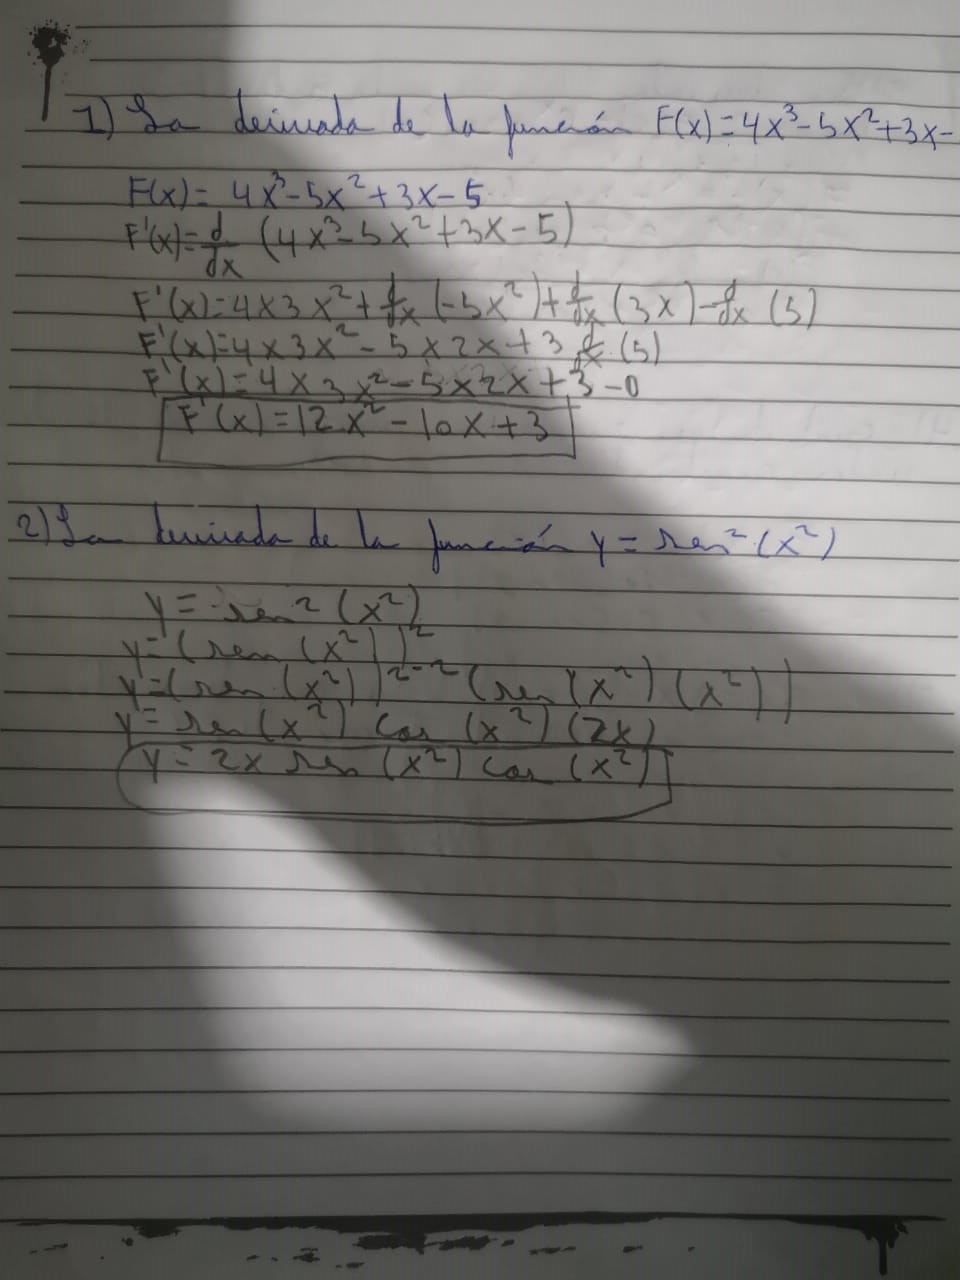 1) La derivada de la función F(x)=4x³-5x²+3x-
F(x)= 4x³-5x²+3x-5
F'(x)=d/dx (4x³-5x²+3x-5)
F'(x)=4x3x²+d/dx(-5x²)+d/dx(3x)-d/dx(5)
F'(x)=4x3x²-5x2x+3 d/dx(5)
F'(x)=4x3x²-5x2x+3-0
F'(x)=12x²-10x+3
2) La derivada de la función y=sen²(x²)
y=sen²(x²)
y=(sen(x²))²
y=(sen(x²))²⁻² (sen(x²)(x²))
y=sen(x²) cos(x²)(2x)
y=2x sen(x²) cos(x²)